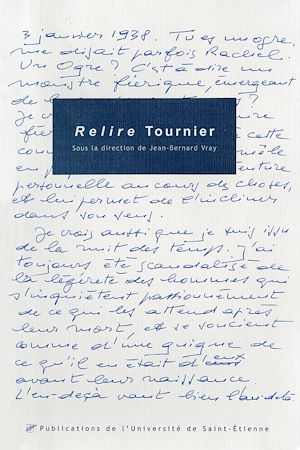 3 janvier 1938. Tu es un ogre,
me disait parfois Rachel.
Un Ogre ? C'est-à-dire un
monstre féerique, émergeant
de la temps ?
Je
à cette
Relire Tournier
Sous la direction de Jean-Bernard Vray
personnelle au cours des choses,
et lui permet de l'incliner
dans son sens.
Je crois aussi que je suis issu
de la nuit des temps. J'ai
toujours été scandalisé de
la légèreté des hommes qui
s'inquiètent passionnément
de ce qui les attend après
leur mort, et se soucient
comme d'une guigne de
ce qu'il en était d'eux
avant leur naissance.
L'en-deçà vaut bien l'au-delà
Publications de l'Université de Saint-Étienne